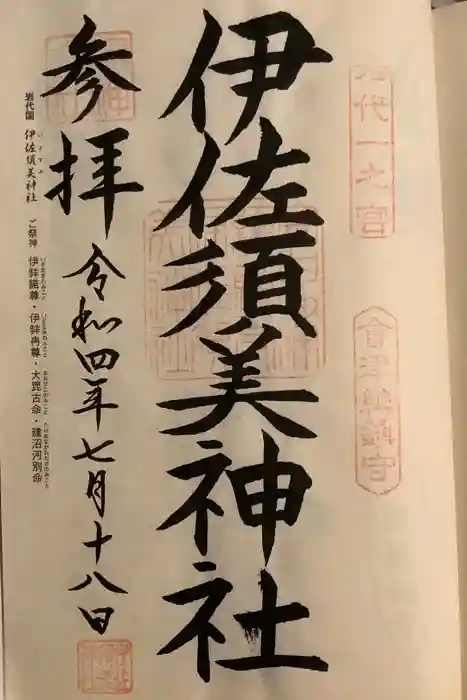 岩代一之宮
會津総鎮守
伊佐須美神社
参拝
令和四年七月十八日
岩代国 伊佐須美神社 ご祭神 伊弉諾尊・伊弉冉尊・大毘古命・建沼河別命